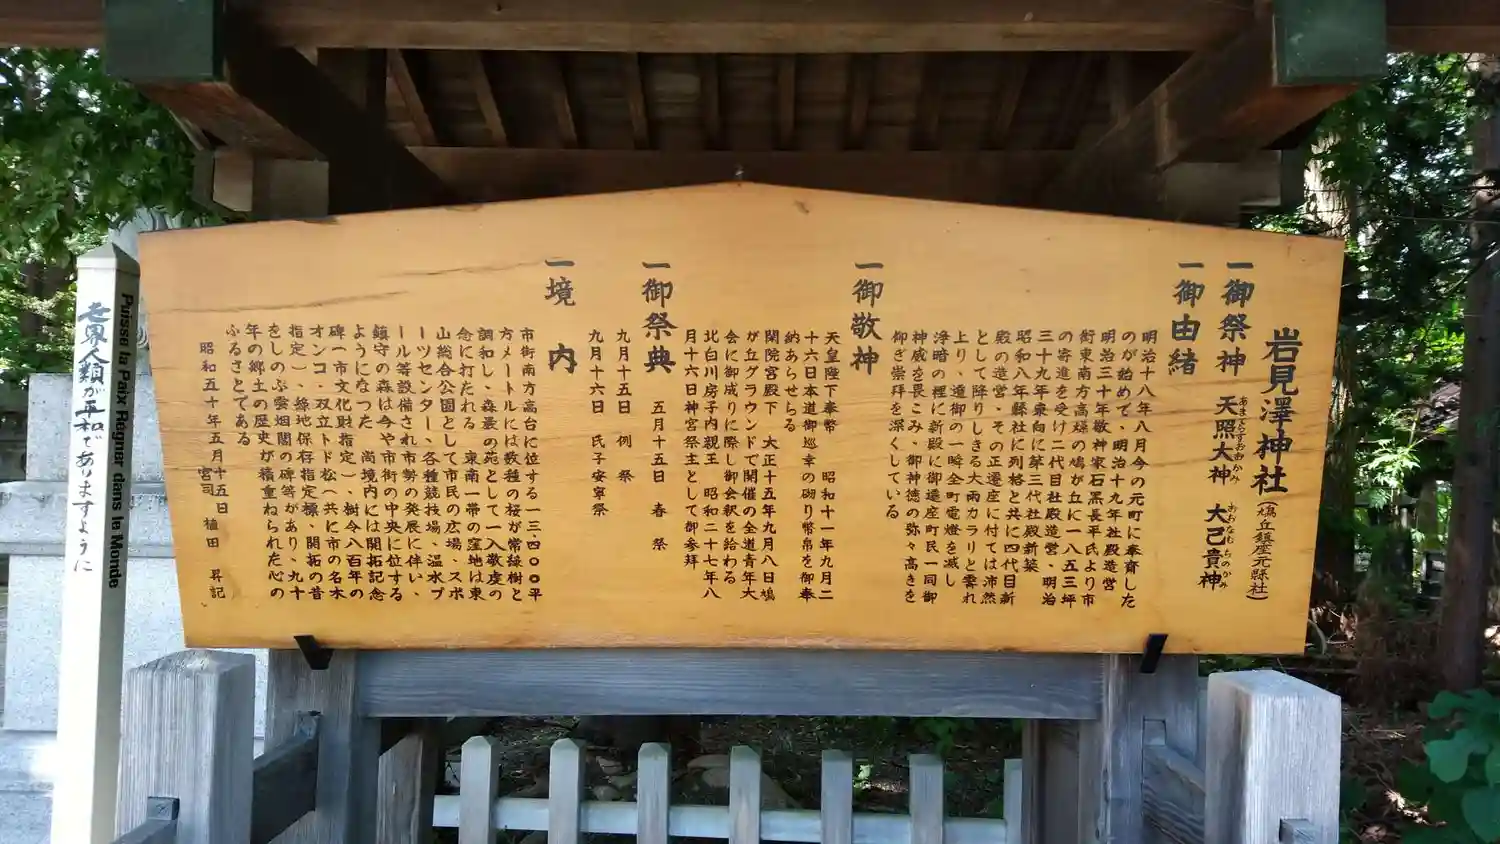 岩見澤神社(鳩丘鎮座元縣社)
一御祭神 天照大神 大己貴神
あまてらすおおかみ おおなむちのかみ
一御由緒
明治十八年八月今の元町に奉齋した
のが始めで、明治十九年社殿造営
明治三十年敬神家石黒長平氏より市
街東南方高燥の鳩が丘に一八五三坪
の寄進を受け二代目社殿造営、明治
三十九年東向に第三代社殿新築
昭和八年縣社に列格と共に四代目新
殿の造営、その正遷座に付ては沛然
として降りしきる大雨カラリと霽れ
上り、遷御の一瞬全町電燈を滅し
浄暗の裡に新殿に御遷座町民一同御
神威を畏こみ、御神徳の弥々高きを
仰ぎ崇拝を深くしている
一御敬神
天皇陛下奉幣 昭和十一年九月二
十六日本道御巡幸の砌り幣帛を御奉
納あらせらる
閑院宮殿下 大正十五年九月八日鳩
が丘グラウンドで開催の全道青年大
会に御成りに際し御会釈を給わる
北白川房子内親王 昭和二十七年八
月十六日神宮祭主として御参拝
一御祭典 五月十五日 春祭
九月十五日 例祭
九月十六日 氏子安寧祭
一境内
市街南方高台に位する一三・四〇〇平
方メートルには数種の桜が常緑樹と
調和し、森嚴の苑として一入敬虔の
念に打たれる 東南一帯の窪地は東
山総合公園として市民の広場、スポ
ーツセンター、各種競技場、温水プ
ール等設備され市勢の発展に伴い、
鎮守の森は今や市街の中央に位する
ようになった 尚境内には開拓記念
碑(市文化財指定)、樹令八百年の
オンコ・双立トド松(共に市の名木
指定)、緑地保存指定標、開拓の昔
をしのぶ雲烟閣の碑等があり、九十
年の郷土の歴史が積重ねられた心の
ふるさとである
昭和五十年五月十五日
宮司 植田 昇記
Puisse la Paix Régner dans le Monde
世界人類が平和でありますように